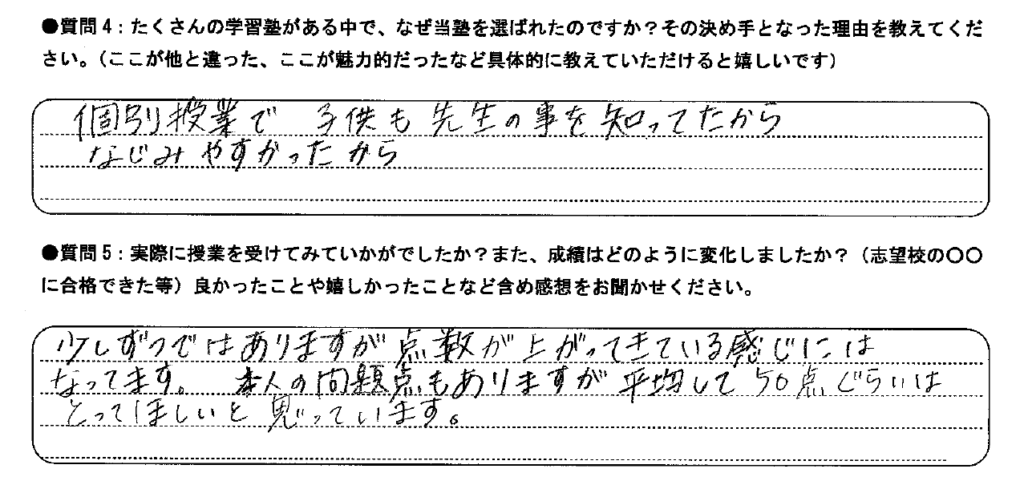 ●質問4：たくさんの学習塾がある中で、なぜ当塾を選ばれたのですか？その決め手となった理由を教えてくだ
さい。（ここが他と違った、ここが魅力的だったなど具体的に教えていただけると嬉しいです）
個別授業で 子供も先生の事を知ってたから
なじみやすかったから
●質問5：実際に授業を受けてみていかがでしたか？また、成績はどのように変化しましたか？（志望校の〇〇
に合格できた等）良かったことや嬉しかったことなど含め感想をお聞かせください。
少しずつではありますが点数が上がってきている感じには
なってます。 本人の問題点もありますが平均して50点ぐらいは
とってほしいと思っています。